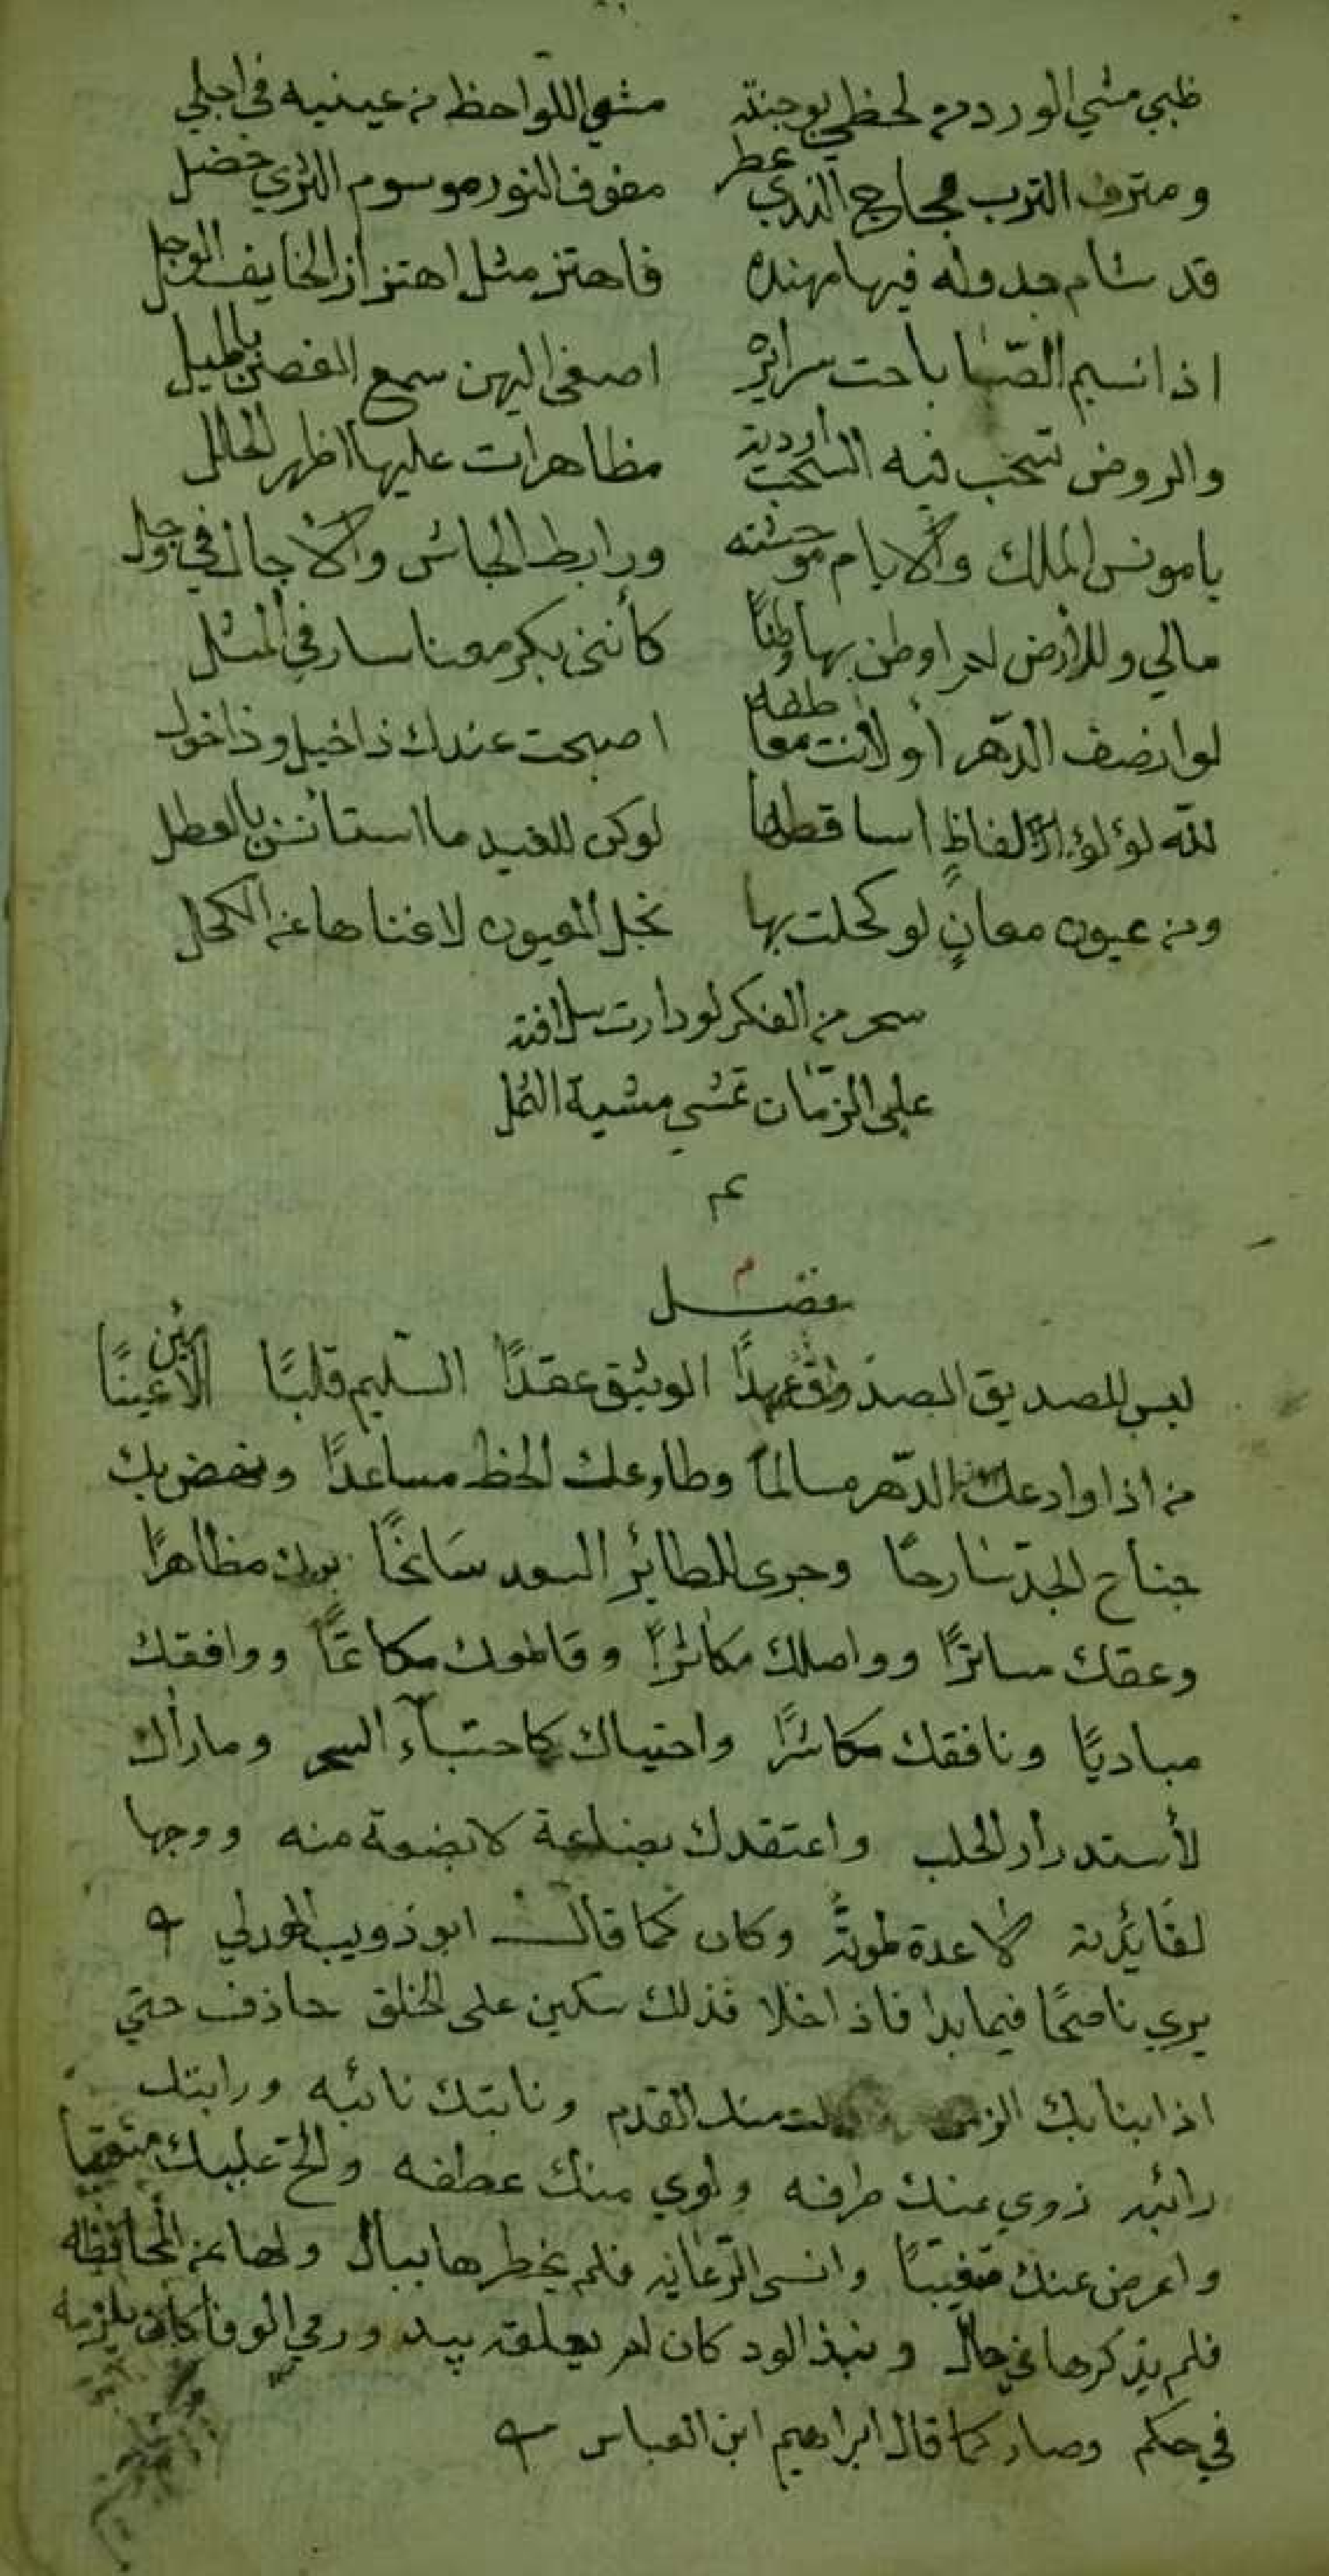 ظبي مشي الورد من لحظي بوجنته مشي اللواحظ من عينيه في اجلي
ومترف الترب مجاج الندي عطر مفوف النور موسوم الثري خضل
قد شام جدوله فيها مهنده فاهتز مثل اهتزاز الخايف الوجل
اذا نسيم الصّبا باحت سرائره اصغى اليهن سمع الغصن بالميل
والروض تسحب فيه السحب اردية مظاهرات عليها اظهر الحلل
يا مونس الملك والايام موحشته ورابط الجاش والآجال في وجل
مالي وللارض لم اوطن بها وطنًا كأنني بكر معنا سار في المثل
لو انصف الدّهر أو لانت معاطفه اصبحت عندك ذا خيل وذا خول
لله لؤلؤ الفاظٍ اساقطها لو كن للغيد ما استأنسن بالعطل
ومن عيون معانٍ لو كحلت بها نجل العيون لاغناها عن الكحل
سحر من الفكر لو دارت سلافته
على الزمّان تمشي مشية الثمل
تم
فصل
ليس للصديق الصدوق عهدًا الوثيق عقدًا السّليم قلبًا الأمين عينًا
من اذا وادعك الدّهر مسالماً وطاوعك الحظ مساعدًا ونهض بك
جناح الجدّ سارحًا وجرى الطائر السعد سانحًا برك مظاهرًا
وعقك مساترًا وواصلك مكاثرًا و وافقك
مباديًا ونافقك مكاشرًا واحتباك كاحتبآء السحر وماراك
لأستدرار الحلب واعتقدك بضاعة لا بضعة منه ووجها
لفائدته لا عدة لموته وكان كما قال ابو ذويب
يري ناصحًا فيما بدا فاذا خلا فذلك سكين على الحلق حاذف حتي
اذا نبابك الزمن منك القدم ونابتك نائبه ورابتك
رائبه زوي عنك طرفه ولوي منك عطفه والح عليك
واعرض عنك وانسي الرّعايه فلم يخطرها ببال ولها عن المحافظه
فلم يذكرها في حال ونبذ الود كان لم يعلقه بيد ورمي الوفا كان لم يلزمه
في حكم وصار كما قال ابراهيم ابن العباس